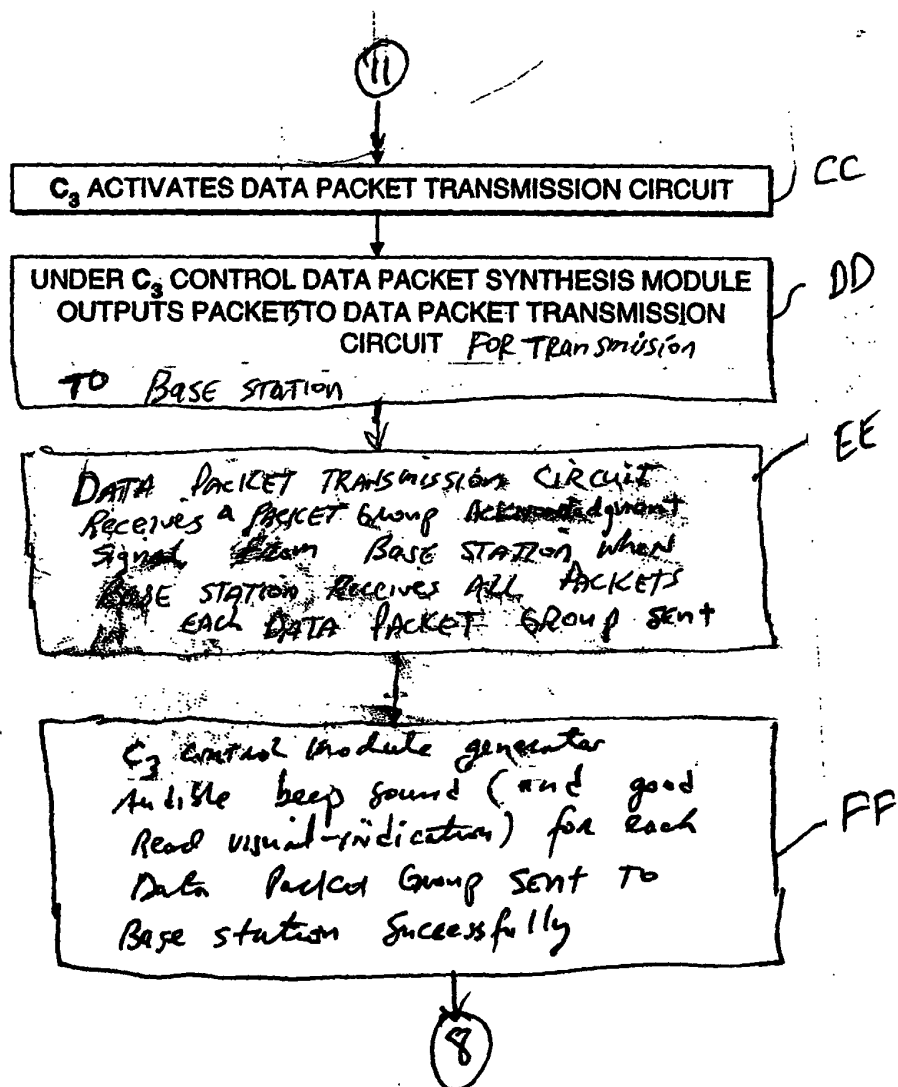 11
C3 ACTIVATES DATA PACKET TRANSMISSION CIRCUIT
CC
UNDER C3 CONTROL DATA PACKET SYNTHESIS MODULE
OUTPUTS PACKETS TO DATA PACKET TRANSMISSION
CIRCUIT FOR TRANSMISION
TO BASE STATION
DD
DATA PACKET TRANSMISSION CIRCUIT
Receives a PACKET Group Acknowledgment
Signal From BASE STATION when
BASE STATION Receives ALL PACKETS
EACH DATA PACKET GROUP sent
EE
C3 control module generator
Audible beep sound (and good
Read visual-indication) for each
Data Packet Group SENT TO
Base station Successfully
FF
8